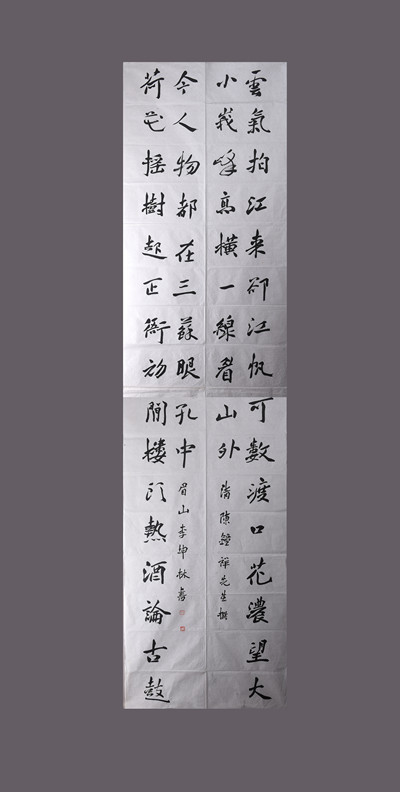 雲氣拍江来卻江帆可數渡口花濃望大
小峩峰高橫一線眉山外
清陳鐘祥先生撰
荷花搖樹起正衙初閒樓頭熱酒論古鼓
今人物都在三蘇眼孔中
眉山李坤林書